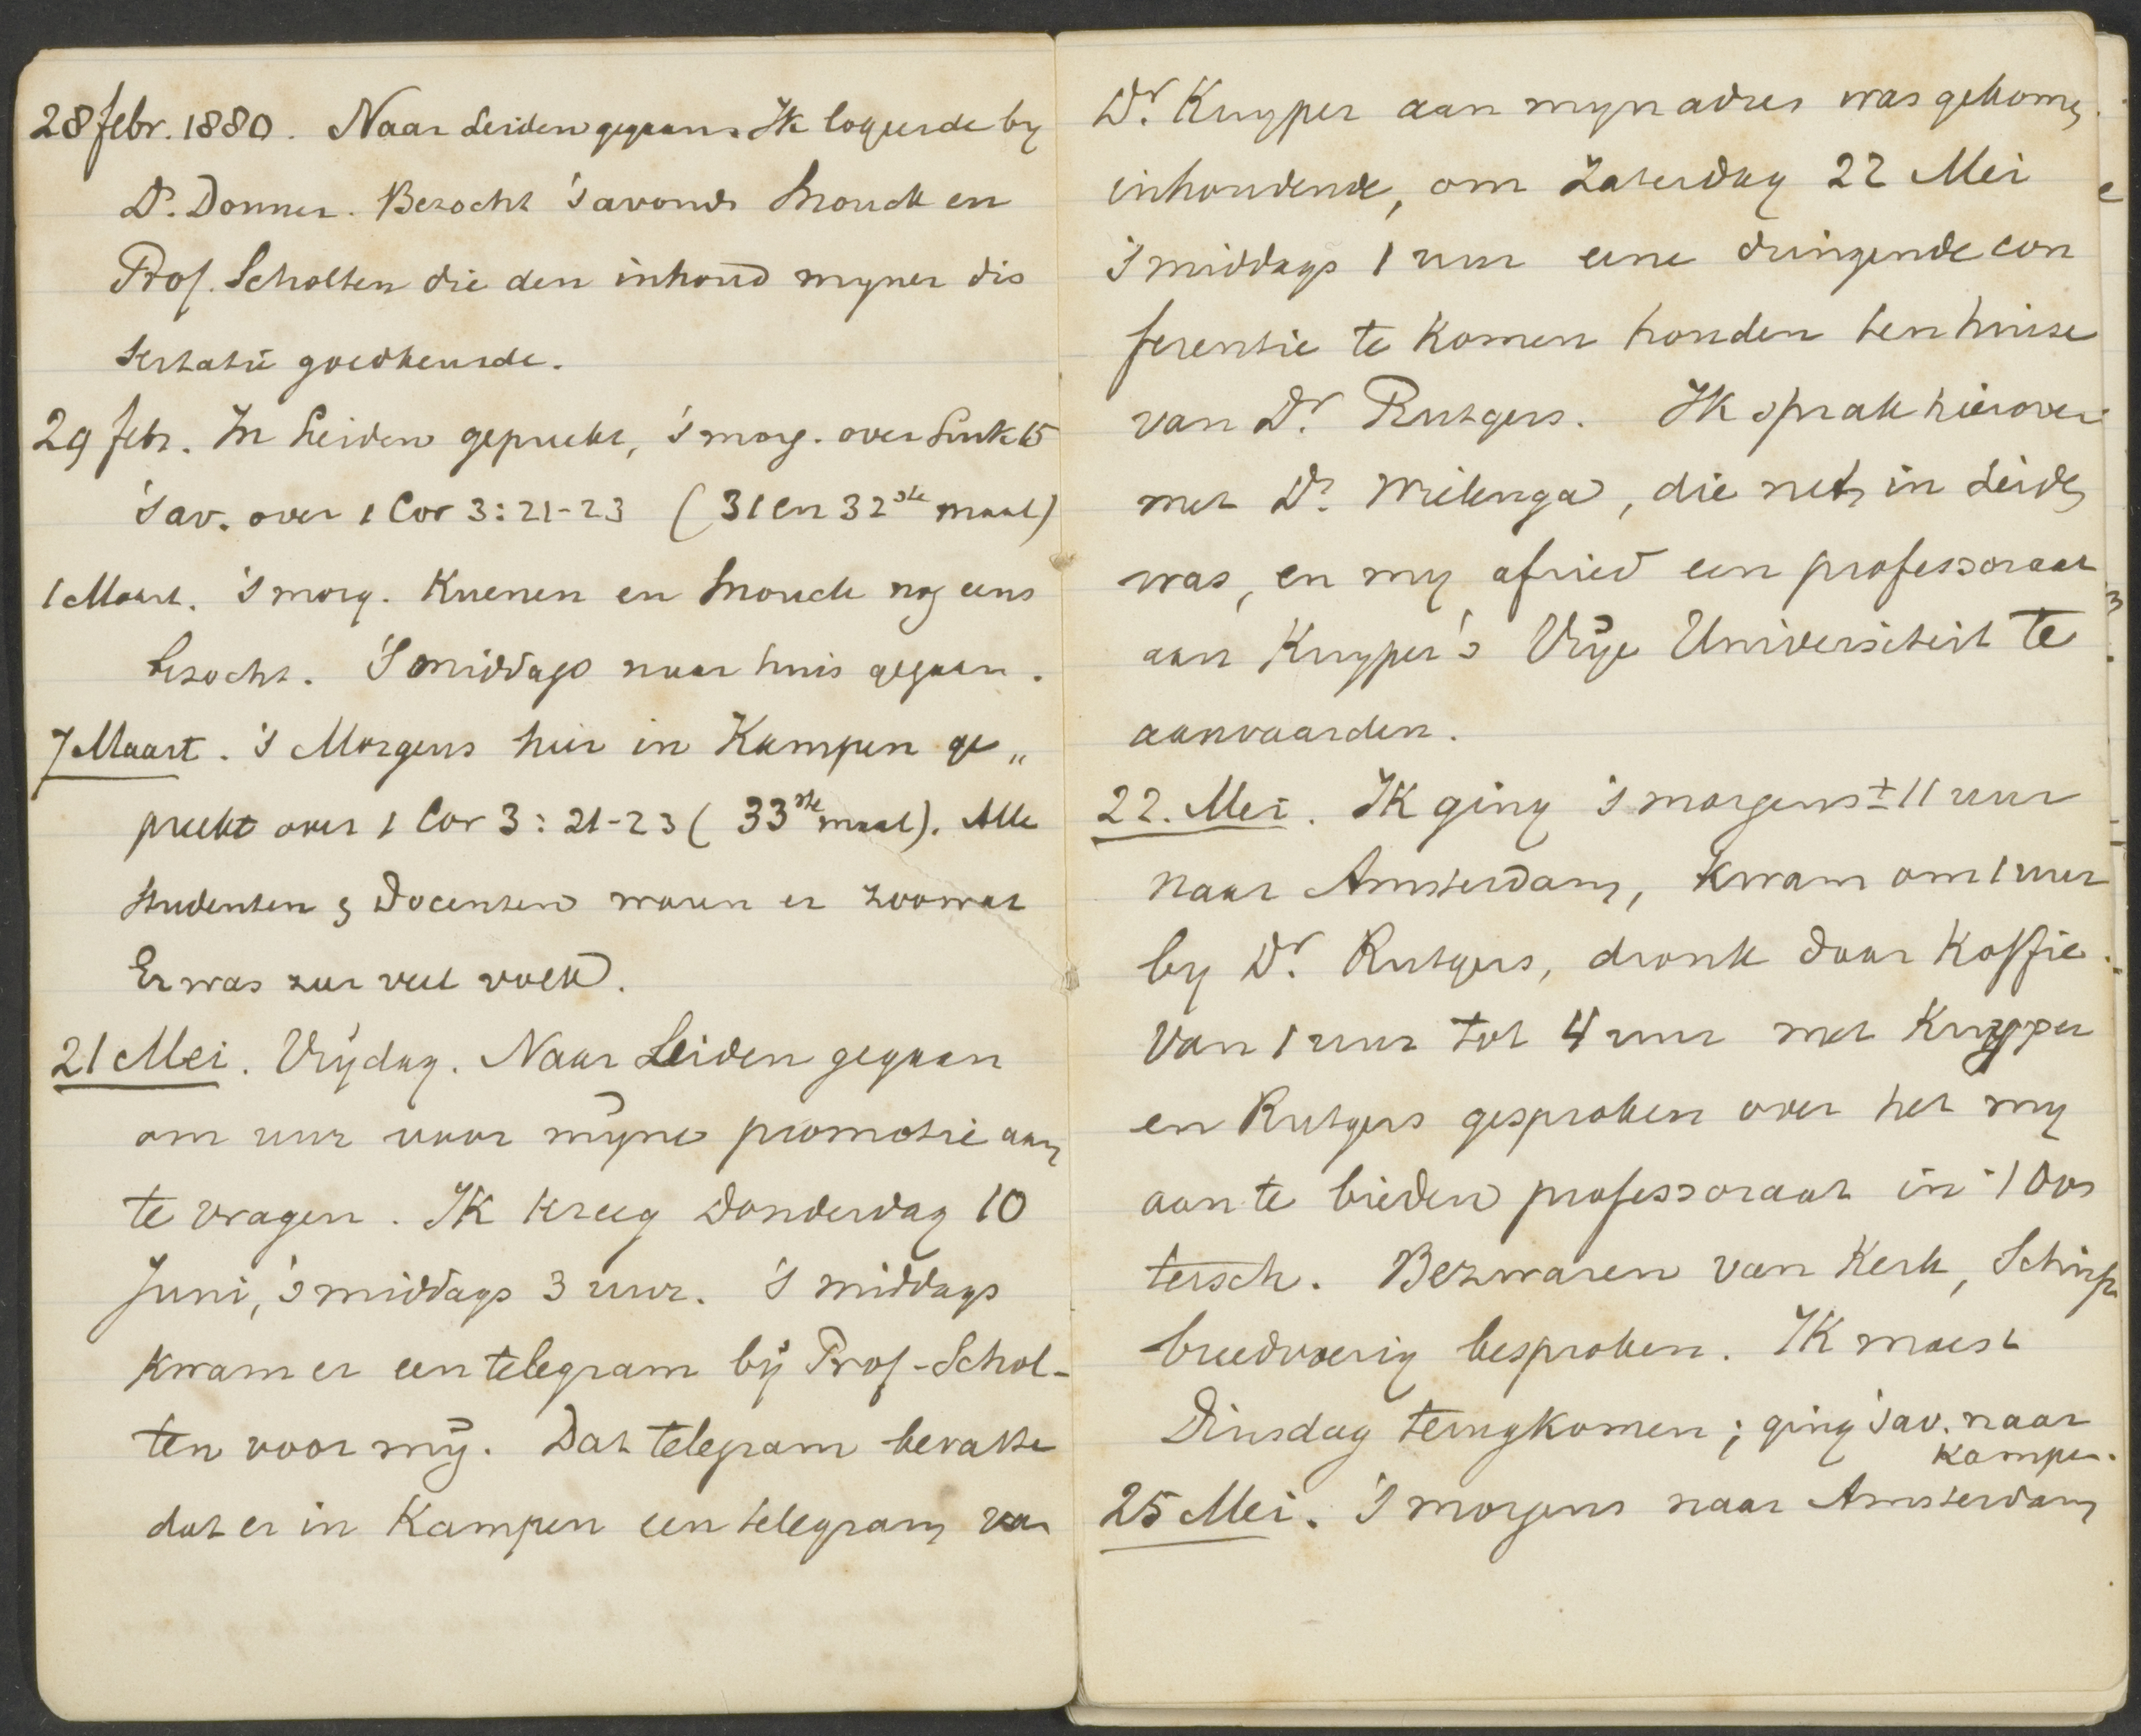 28 febr. 1880. Naar Leiden gegaan. Ik logeerde by
Ds. Donner. Bezocht 's avonds Snouck en
Prof. Scholten die den inhoud myner dis
sertatie goedkeurde.
29 febr. In Leiden gepreekt, 's morg. over Luk 15
's av. over 1 Cor 3: 21-23 (31 en 32ste maal)
1 Maart. 's morg. Kuenen en Snouck nog eens
bezocht. 's middags naar huis gegaan.
7 Maart. 's Morgens hier in Kampen ge„
preekt over 1 Cor 3: 21-23 (33ste maal). Alle
studenten & Docenten waren er zoowat
Er was zeer veel volk.
21 Mei. Vrijdag. Naar Leiden gegaan
om uur voor mijne promotie aan
te vragen. Ik kreeg Donderdag 10
Juni, 's middags 3 uur. 's middags
kwam er een telegram bij Prof. Schol-
ten voor mij. Dat telegram bevatte
dat er in Kampen een telegram van
Dr. Kuyper aan myn adres was gekomen.
inhoudende, om Zaterdag 22 Mei
's middags 1 uur eene dringende con
ferentie te komen houden ten huize
van Dr. Rutgers. Ik sprak hierover
met Ds. Wielenga, die net in Leiden
was, en my afried een professoraat
aan Kuyper's Vrije Universiteit te
aanvaarden.
22. Mei. Ik ging 's morgens ± 11 uur
naar Amsterdam, kwam om 1 uur
by Dr. Rutgers, dronk daar koffie.
Van 1 uur tot 4 uur met Kuyper
en Rutgers gesproken over het my
aan te bieden professoraat in 't Oos
tersch. Bezwaren van Kerk, School
breedvoerig besproken. Ik moest
Dinsdag terugkomen; ging 's av. naar
Kampen.
25 Mei. 's morgens naar Amsterdam